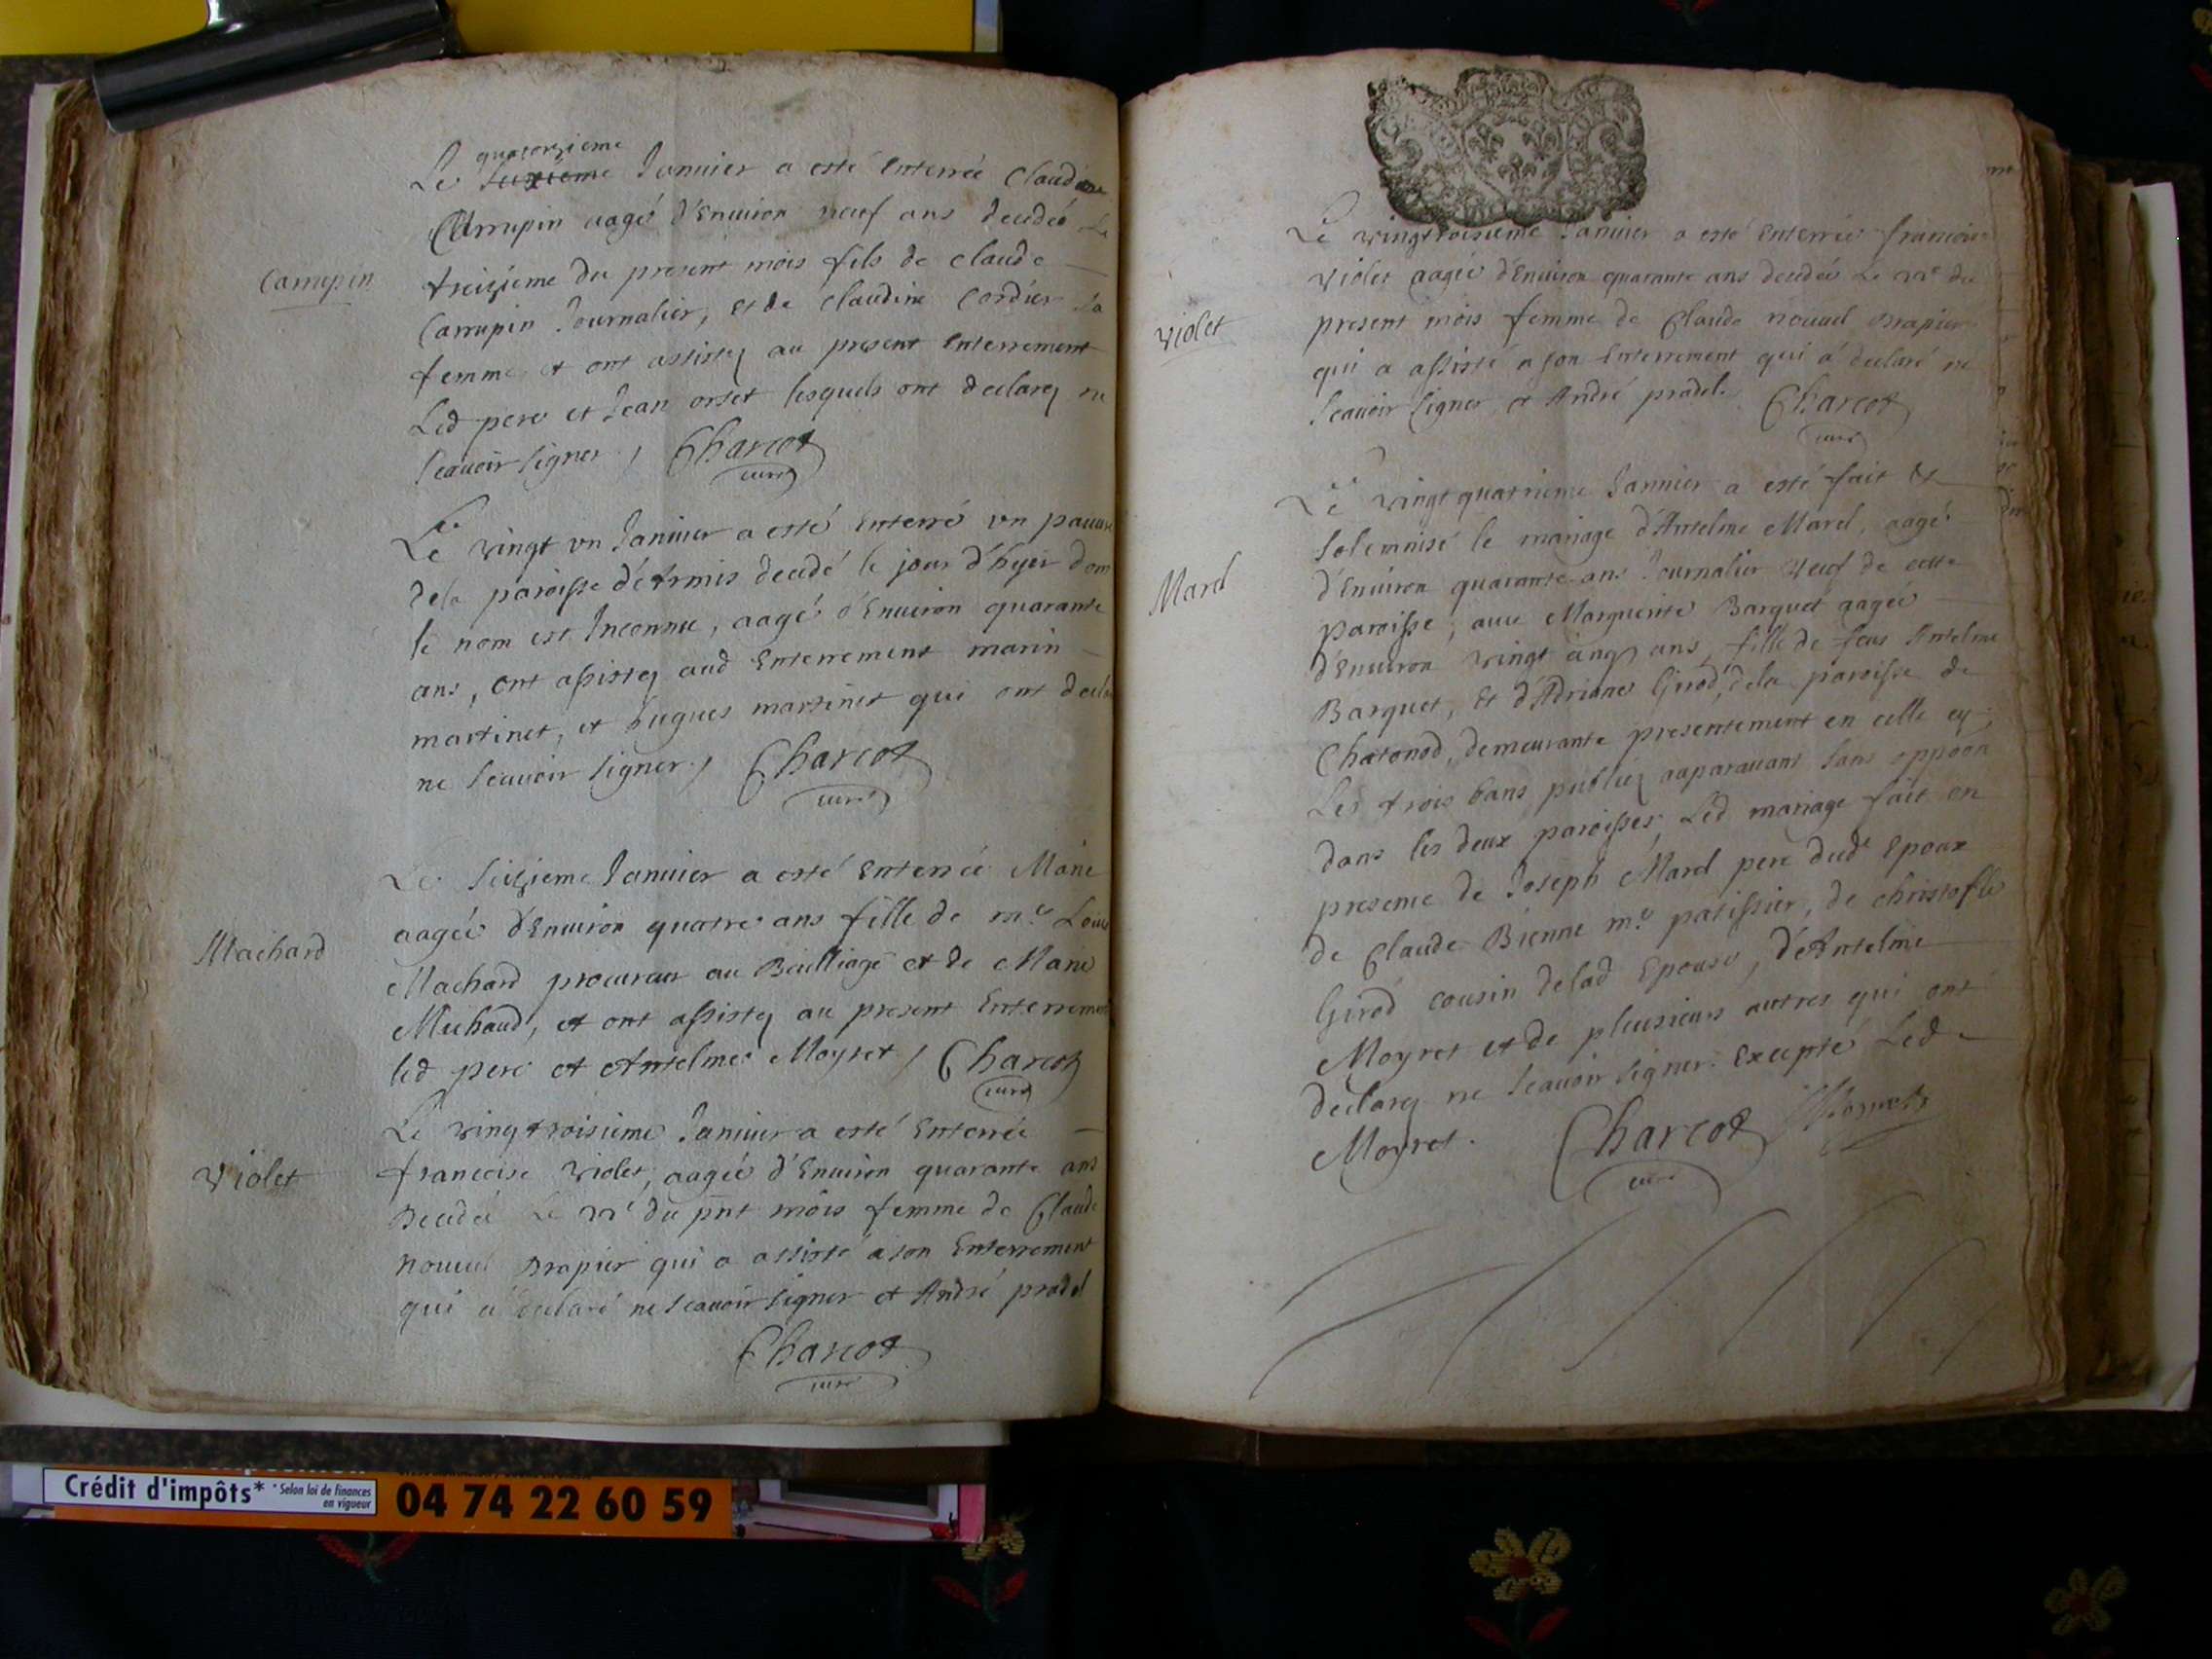 quatorzieme
Le Januier a esté Enterrée Claudine
Carrupin aagé d'Enuiron neuf ans decedée Le
Carrupin
treizieme du present mois fils de claude
Carrupin Journalier, et de Claudine Cordier sa
femme et ont assistez au present Enterrement
Led pere et Jean orset lesquels ont declarez ne
Scauoir signer / Charcot
curé
Le vingt vn Januier a esté Enterré vn pauure
dela paroisse d'Armis decedé le jour d'hyer dont
le nom est Inconnu, aagé d'Enuiron quarante
ans, ont assistez aud Enterrement marin
martinet, et hugues martinet qui ont declaré
ne scauoir signer / Charcot
curé
Le seizieme Januier a esté Enterrée Marie
aagée d'Enuiron quatre ans fille de mre Louis
Machard
Machard procureur au Bailliage et de Marie
Michaud, et ont assistez au present Enterrement
led pere et Antelme Moyret / Charcot
curé
Le vingtroisieme Januier a esté Enterrée
Violet
francoise violet, aagée d'Enuiron quarante ans
Decedée Le du pnt mois femme de Claude
nouuel Drapier qui a assisté a son Enterrement
qui a declaré ne scauoir signer et André pradel
Charcot
curé
Le vingtroisieme Januier a esté Enterrée francoise
violet aagée d'Enuiron quarante ans decedée Le du
Violet
present mois femme de Claude nouuel Drapier
qui a assisté a son Enterrement qui a declaré ne
scauoir signer et André pradel. Charcot
curé
Le vingt quatrieme Januier a esté fait et
solemnisé le mariage d'Antelme Marel, aagé
Marel
d'Enuiron quarante ans Journalier Veuf de cette
paroisse, auec Marguerite Barquet aagée
d'Enuiron vingt cinq ans, fille de feus Antelme
Barquet, et d'Adriane Girod, dela paroisse de
Chatonod, demeurante presentement en celle cy,
Les trois bans publiez auparauant sans oppoon
dans les deux paroisses, Led mariage fait en
presence de Joseph Marel pere dud Epoux
de Claude Bienne me patissier, de christofle
Girod cousin delad Epouse, d'Antelme
Moyret et de plusieurs autres qui ont
declarez ne scauoir signer Excepté Led
Moyret. Charcot Moyret
curé
Crédit d'impôts* *Selon loi de finances
en vigueur
04 74 22 60 59